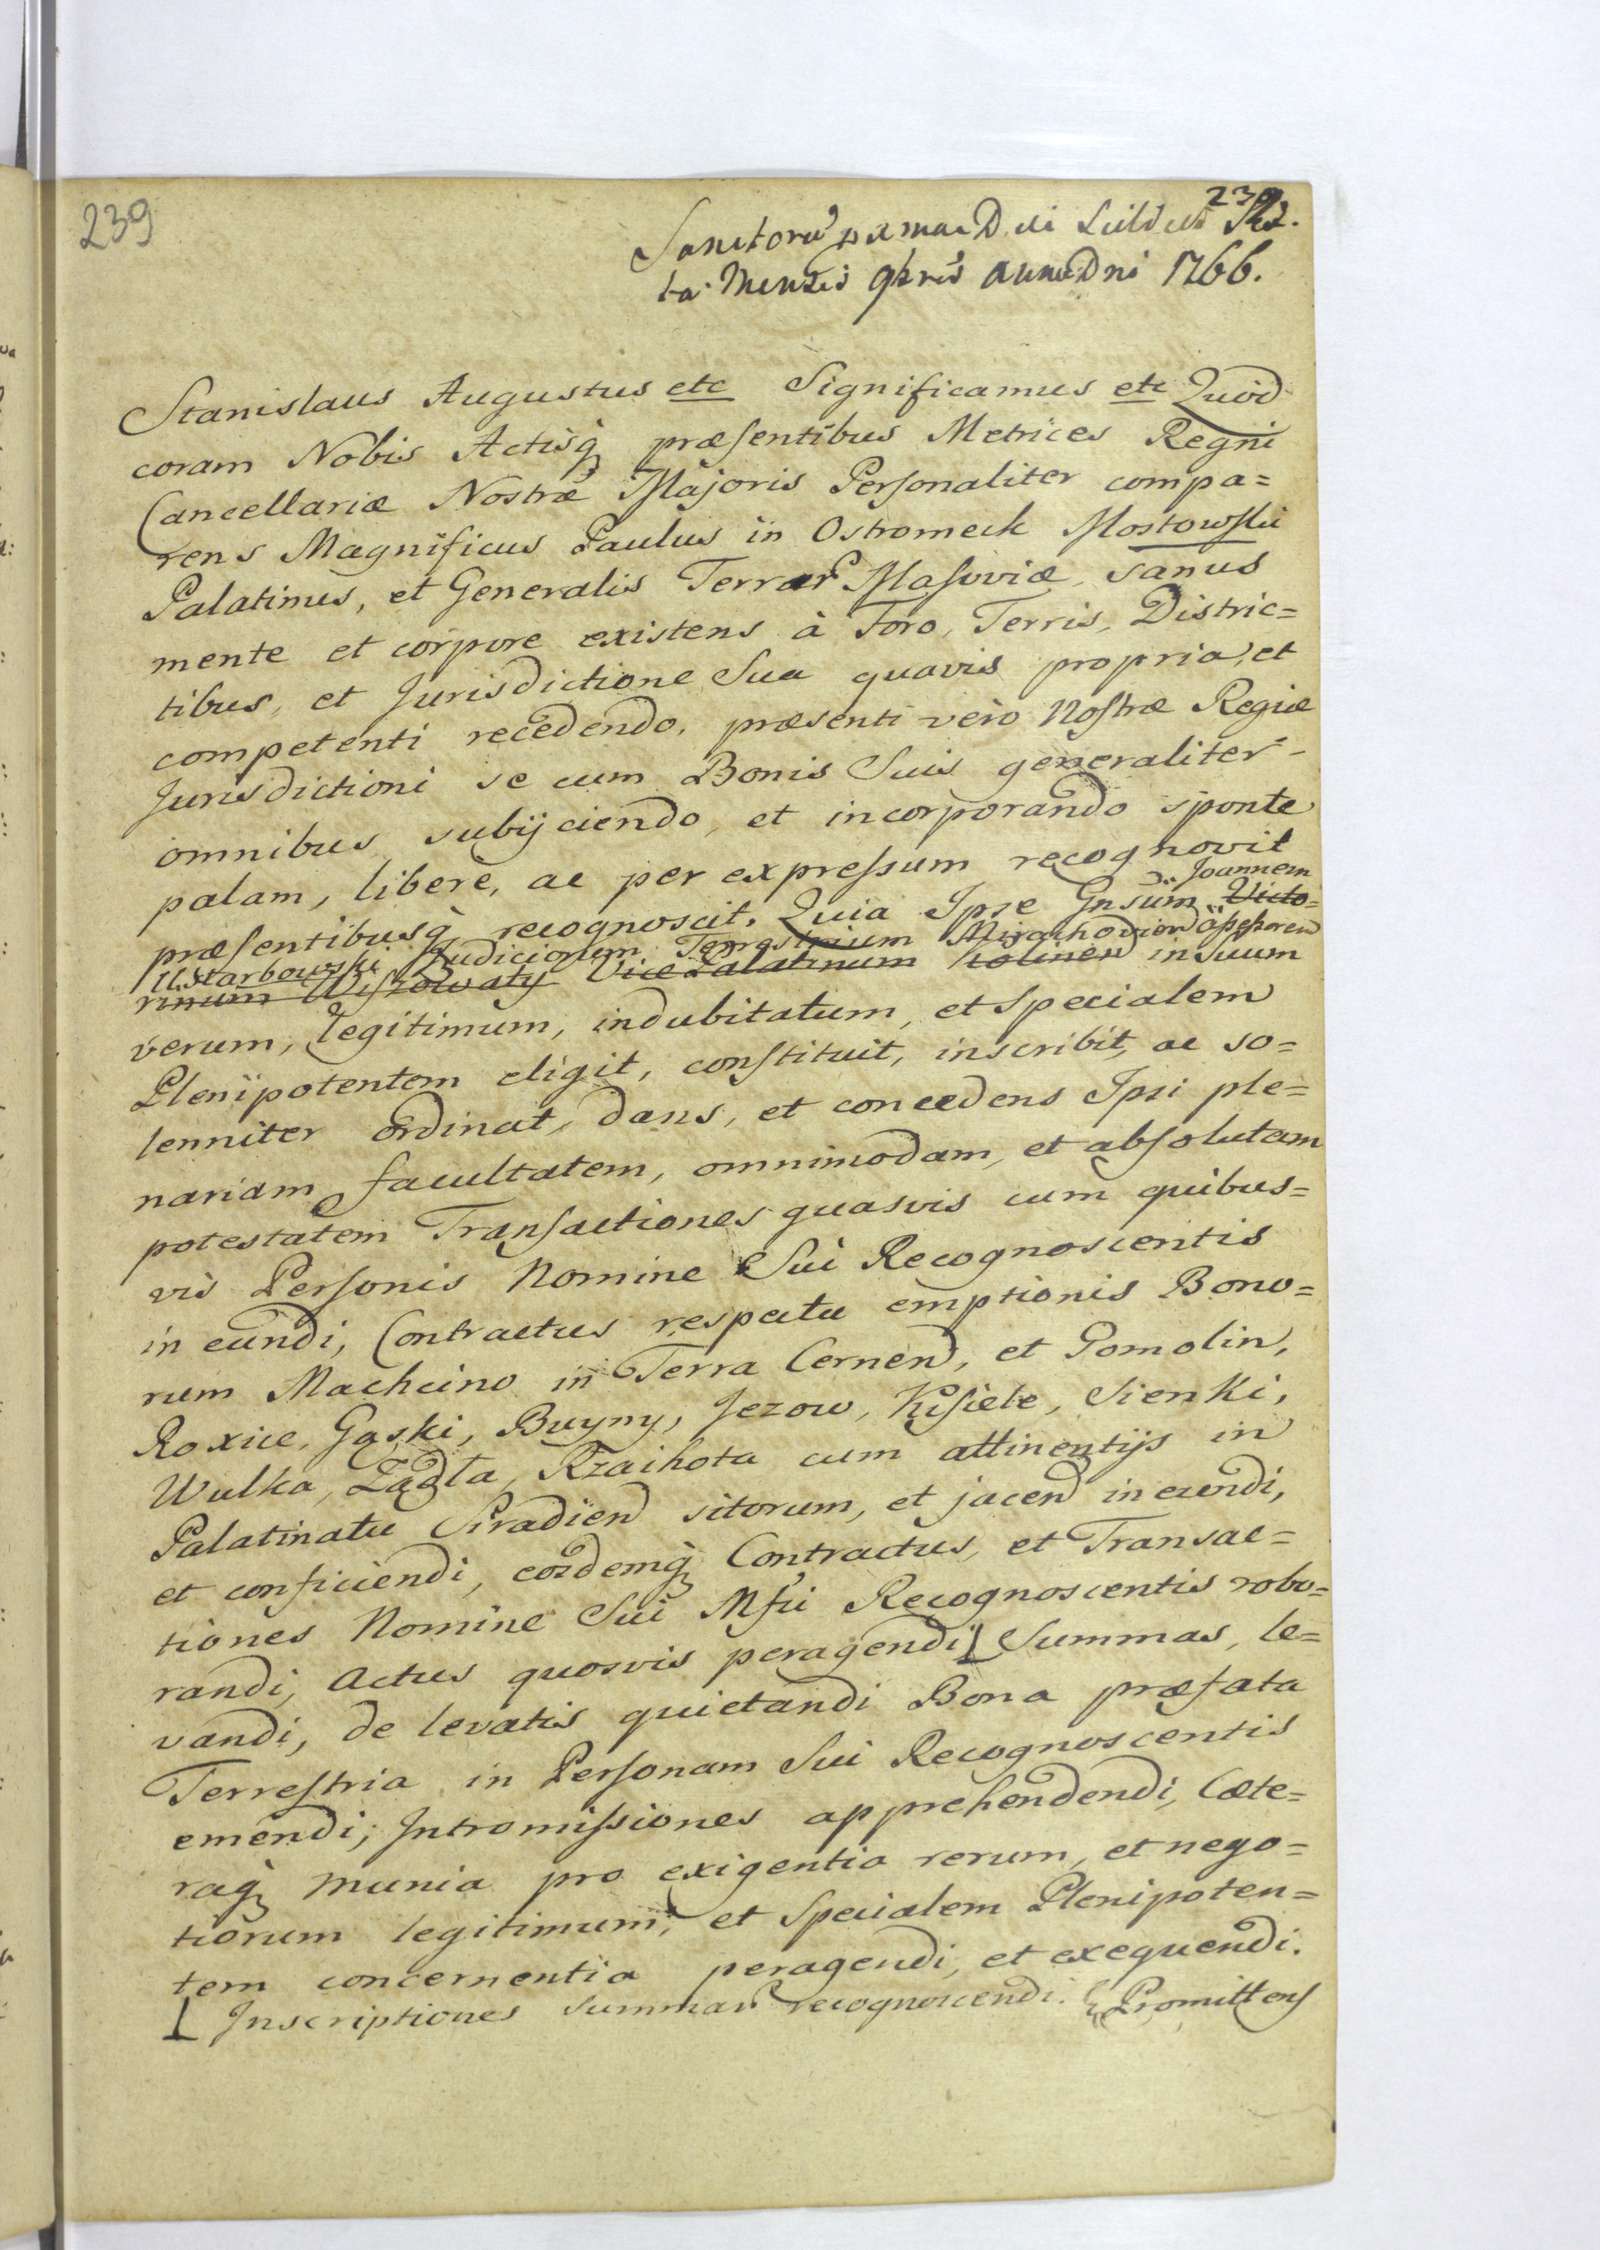 239
239
Sanctorū
ta Mensis 9bris Anno Dni 1766.
Stanislaus Augustus etc Significamus etc Quod
coram Nobis Actisq̃ præsentibus Metrices Regni
Cancellariæ Nostræ Majoris Personaliter compa=
rens Magnificus Paulus in Ostromeck Mostowski
Palatinus, et Generalis Terrar̃ Masoviæ, sanus
mente et corpore existens à Foro, Terris, Distric=
tibus, et Jurisdictione Sua quavis propria, et
competenti recedendo, præsenti vero Nostræ Regiæ
Jurisdictioni se cum Bonis Suis generaliter
omnibus subijciendo, et incorporando sponte
palam, libere, ac per expressum recognovit
præsentibusq̀ recognoscit. Quia Ipse Gnsum Victo=
Joannem
U. Skarbowski Judiciorum Terrestrium
rinum Wiszowaty Vice Palatinum in Suum
verum, legitimum, indubitatum, et Specialem
Plenipotentem eligit, constituit, inscribit, ac so=
lenniter ordinat, dans, et concedens Ipsi ple=
nariam facultatem, omnimodam, et absolutam
potestatem Transactiones quasvis cum quibus=
vis Personis Nomine Sui Recognoscentis
in eundi, Contractus respectu emptionis Bono=
rum Machcino in Terra Cernen, et Pomolin,
Roxice, Gąski, Buyny, Jezow, Kisiele, Sienki,
Wulka, Ządła, Rzaihota cum attinentijs in
Palatinatu Siradien sitorum, et jacen in eundi,
et conficiendi, eosdemq̃ Contractus, et Transac=
tiones Nomine Sui Mfci Recognoscentis robo=
randi, Actus quosvis peragendi Summas, le=
vandi, de levatis quietandi Bona præfata
Terrestria in Personam Sui Recognoscentis
emendi; Intromissiones apprehendendi, Cæte=
raq̃ munia pro exigentia rerum, et nego=
tiorum legitimum, et Specialem Plenipoten=
tem concernentia peragendi, et exequendi.
Inscriptiones summar̃ recognoscendi. Promittens